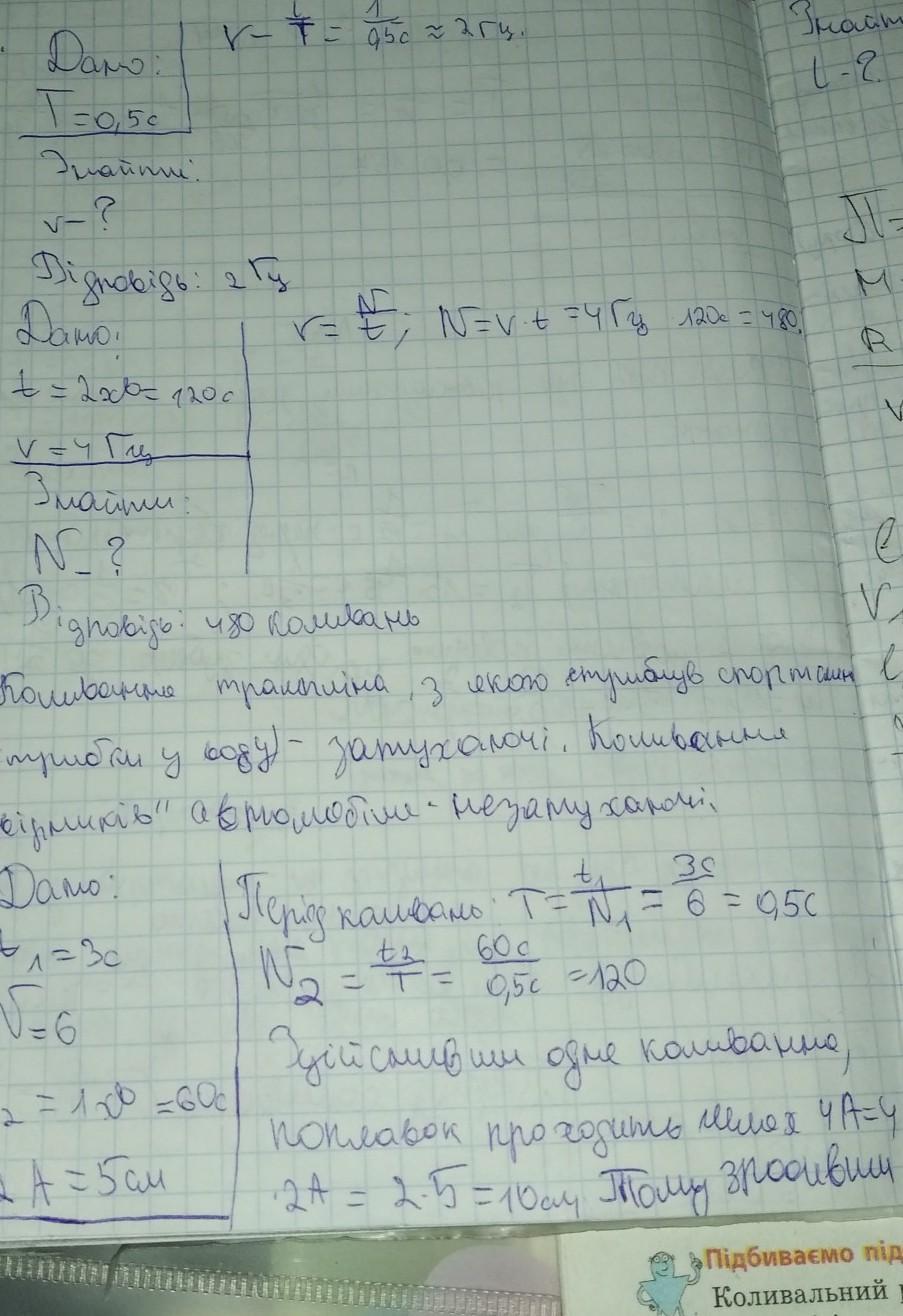 Дано:
T = 0,5с
ν - 1/T = 1/0,5с ≈ 2 Гц.
Знайти:
ν - ?
Відповідь: 2 Гц
Дано:
t = 2хв = 120с
ν = 4 Гц
ν = N/t; N = ν · t = 4 Гц 120с = 480.
Знайти:
N - ?
Відповідь: 480 коливань
Коливання трампліна, з якого стрибнув спортсмен
у воду) - затухаючі. Коливання
автомобіля - незатухаючі.
Дано:
t₁ = 3с
N = 6
₂ = 1хв = 60с
A = 5см
Період коливань: T = t₁/N₁ = 3с/6 = 0,5с
N₂ = t₂/T = 60с/0,5с = 120
Здійснивши одне коливання,
поплавок проходить шлях 4A = 4
·2A = 2·5 = 10см. Тому зробивши
Знайт
l - ?
П =
M
R
ν
l
V
l
Підбиваємо під
Коливальний